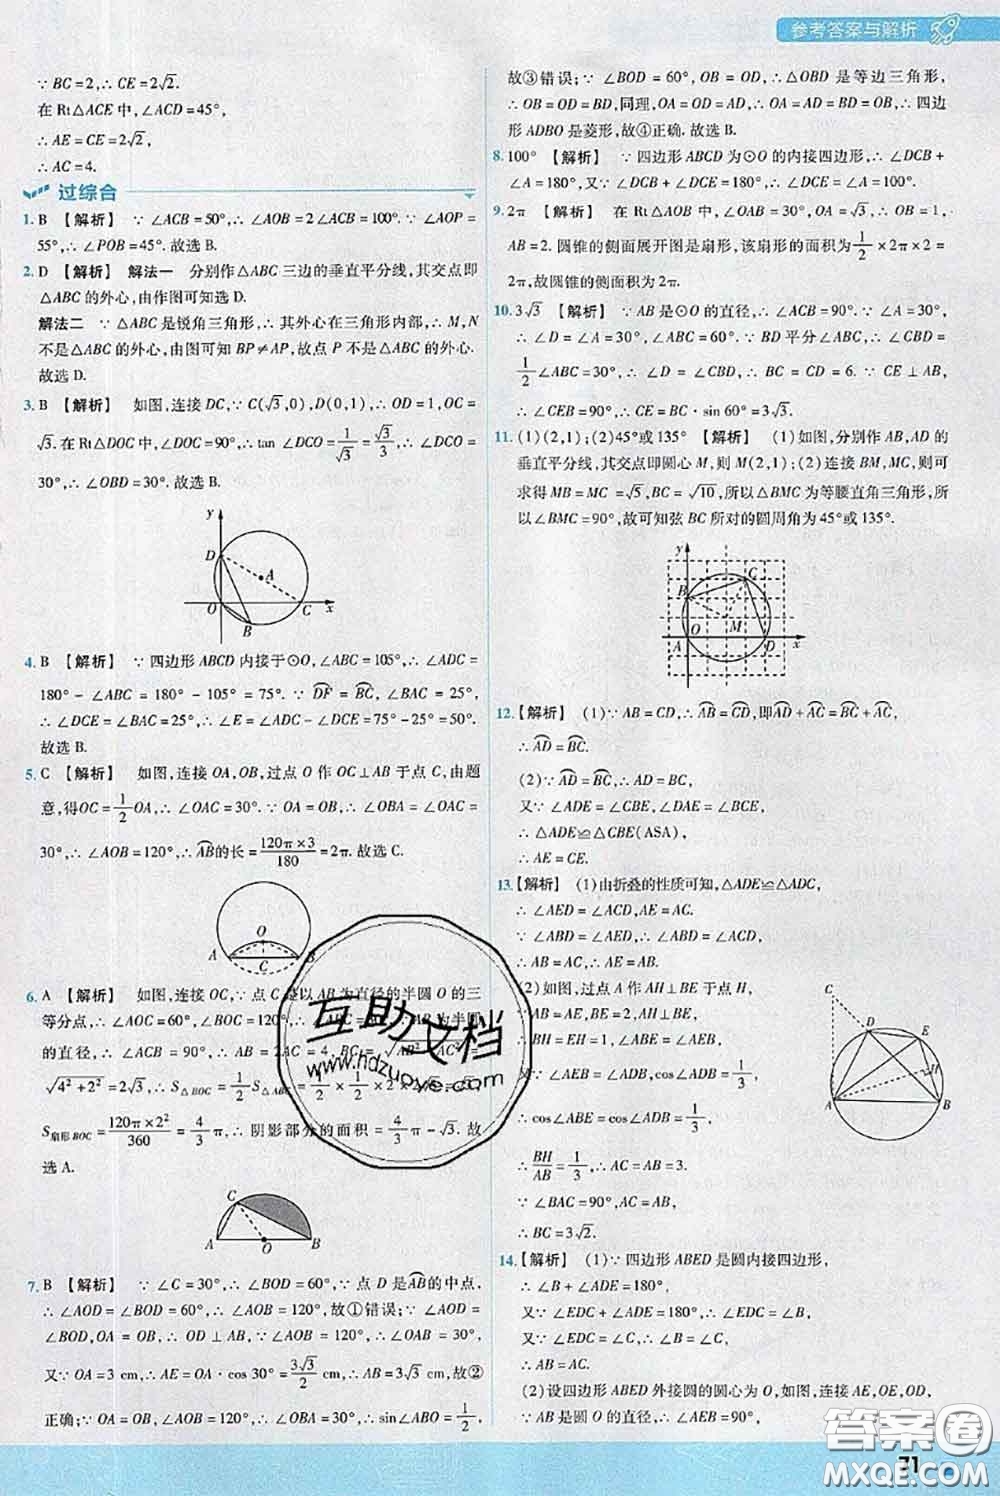 参考答案与解析
∵ BC=2,∴ CE=2√2.
在 Rt△ACE 中,∠ACD=45°,
∴ AE=CE=2√2,
∴ AC=4.
过综合
1. B 【解析】 ∵ ∠ACB=50°,∴ ∠AOB=2∠ACB=100°. ∵ ∠AOP=
55°,∴ ∠POB=45°. 故选 B.
2. D 【解析】 解法一 分别作△ABC 三边的垂直平分线,其交点即
△ABC 的外心,由作图可知选 D.
解法二 ∵ △ABC 是锐角三角形,∴ 其外心在三角形内部,∴ M,N
不是△ABC 的外心,由图可知 BP≠AP,故点 P 不是△ABC 的外心.
故选 D.
3. B 【解析】 如图,连接 DC,∵ C(√3,0),D(0,1),∴ OD=1,OC=
√3. 在 Rt△DOC 中,∠DOC=90°,∴ tan ∠DCO=1/√3=√3/3,∴ ∠DCO=
30°,∴ ∠OBD=30°. 故选 B.
y
D
A
O
C
x
B
4. B 【解析】 ∵ 四边形 ABCD 内接于⊙O,∠ABC=105°,∴ ∠ADC=
180°-∠ABC=180°-105°=75°. ∵ DF=BC,∠BAC=25°,
∴ ∠DCE=∠BAC=25°,∴ ∠E=∠ADC-∠DCE=75°-25°=50°.
故选 B.
5. C 【解析】 如图,连接 OA,OB,过点 O 作 OC⊥AB 于点 C,由题
意,得OC=1/2 OA,∴ ∠OAC=30°. ∵ OA=OB,∴ ∠OBA=∠OAC=
30°,∴ ∠AOB=120°,∴ AB的长=120π×3/180=2π. 故选 C.
O
A
C
B
6. A 【解析】 如图,连接 OC,∵ 点 C 是以 AB 为直径的半圆 O 的三
等分点,∴ ∠AOC=60°,∠BOC=120°,∵ AB 为半圆
的直径,∴ AB=2AC=4,BC=√AB²-AC²=
√4²+2²=2√3,∴ S△BOC=1/2 S△ABC=1/2×1/2×2×2√3=√3,
S扇形BOC=120π×2²/360=4/3 π,∴ 阴影部分的面积=4/3 π-√3. 故
选 A.
C
A
O
B
7. B 【解析】 ∵ ∠C=30°,∴ ∠BOD=60°. ∵ 点 D 是AB的中点,
∴ ∠AOD=∠BOD=60°,∴ ∠AOB=120°,故①错误;∵ ∠AOD=
∠BOD,OA=OB,∴ OD⊥AB,∵ ∠AOB=120°,∴ ∠OAB=30°.
又∵ OA=3 cm,∴ AE=OA·cos 30°=3√3/2 cm,∴ AB=3√3 cm,故②
正确;∵ OA=OB,∠AOB=120°,∴ ∠ABO=30°,∴ sin∠ABO=1/2,
故③错误;∵ ∠BOD=60°,OB=OD,∴ △OBD 是等边三角形,
∴ OB=OD=BD,同理,OA=OD=AD,∴ OA=AD=BD=OB,∴ 四边
形 ADBO 是菱形,故④正确. 故选 B.
8. 100° 【解析】 ∵ 四边形 ABCD 为⊙O 的内接四边形,∴ ∠DCB+
∠A=180°,又∵ ∠DCB+∠DCE=180°,∴ ∠DCE=∠A=100°.
9. 2π 【解析】 在 Rt△AOB 中,∠OAB=30°,OA=√3,∴ OB=1,
AB=2. 圆锥的侧面展开图是扇形,该扇形的面积为1/2×2π×2=
2π,故圆锥的侧面积为 2π.
10. 3√3 【解析】 ∵ AB 是⊙O 的直径,∴ ∠ACB=90°. ∵ ∠A=30°,
∴ ∠D=∠A=30°,∠ABC=60°. ∵ BD 平分∠ABC,∴ ∠CBD=
1/2∠ABC=30°,∴ ∠D=∠CBD,∴ BC=CD=6. ∵ CE⊥AB,
∴ ∠CEB=90°,∴ CE=BC·sin 60°=3√3.
11. (1)(2,1);(2)45°或 135° 【解析】 (1)如图,分别作 AB,AD 的
垂直平分线,其交点即圆心 M,则 M(2,1);(2)连接 BM,MC,则可
求得 MB=MC=√5,BC=√10,所以△BMC 为等腰直角三角形,所
以∠BMC=90°,故可知弦 BC 所对的圆周角为 45°或 135°.
y
C
B
O
M
A
D
x
12. 【解析】 (1)∵ AB=CD,∴ AB=CD,即AD+AC=BC+AC,
∴ AD=BC.
(2)∵ AD=BC,∴ AD=BC,
又∵ ∠ADE=∠CBE,∠DAE=∠BCE,
∴ △ADE≌△CBE(ASA),
∴ AE=CE.
13. 【解析】 (1)由折叠的性质可知,△ADE≌△ADC,
∴ ∠AED=∠ACD,AE=AC.
∵ ∠ABD=∠AED,∴ ∠ABD=∠ACD,
∴ AB=AC,∴ AE=AB.
(2)如图,过点 A 作 AH⊥BE 于点 H,
∵ AB=AE,BE=2,AH⊥BE,
∴ BH=EH=1,∵ ∠ABE=∠AEB,
∠ADB=∠AEB,cos∠ADB=1/3,
∴ cos∠ABE=cos∠ADB=1/3,
∴ BH/AB=1/3,∴ AC=AB=3.
∵ ∠BAC=90°,AC=AB,
∴ BC=3√2.
C
D
E
H
A
B
14. 【解析】 (1)∵ 四边形 ABED 是圆内接四边形,
∴ ∠B+∠ADE=180°,
又∵ ∠EDC+∠ADE=180°,∴ ∠EDC=∠B,
又∵ ∠EDC=∠C,∴ ∠B=∠C,
∴ AB=AC.
(2)设四边形 ABED 外接圆的圆心为 O,如图,连接 AE,OE,OD,
∵ AB 是圆 O 的直径,∴ ∠AEB=90°,
互助文档
www.hdzuoye.com
答案圈
MXQE.COM
71